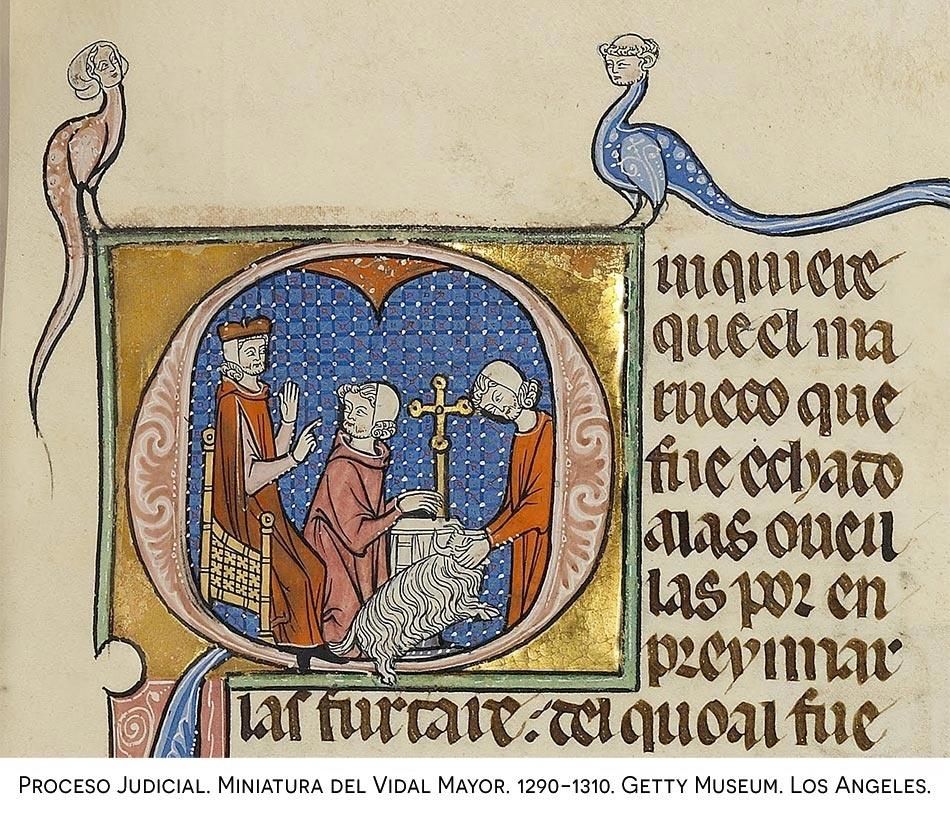 Quiquiere
que el ma
rueco que
fue echado
a las oueil
las por en
preynnar
las furtare: del quoal fue
Proceso Judicial. Miniatura del Vidal Mayor. 1290-1310. Getty Museum. Los Angeles.